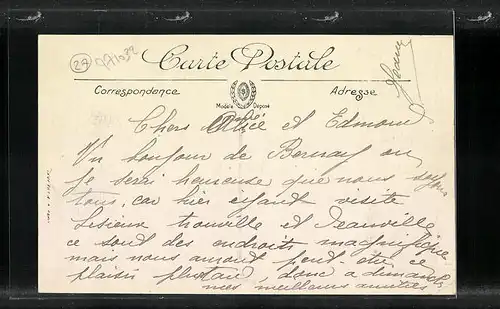 28
Carte Postale
Correspondance
Adresse
Modèle Déposé
Chers et Edmond
Un bonjour de Bernay ou
je serai heureuse que nous soyons
tous, car hier ayant visite
Lisieux trouville et Deauville
ce sont des endroits magnifique
mais nous auront peut etre ce
plaisir plustard, donc a dimanche
mes meilleurs amitiés